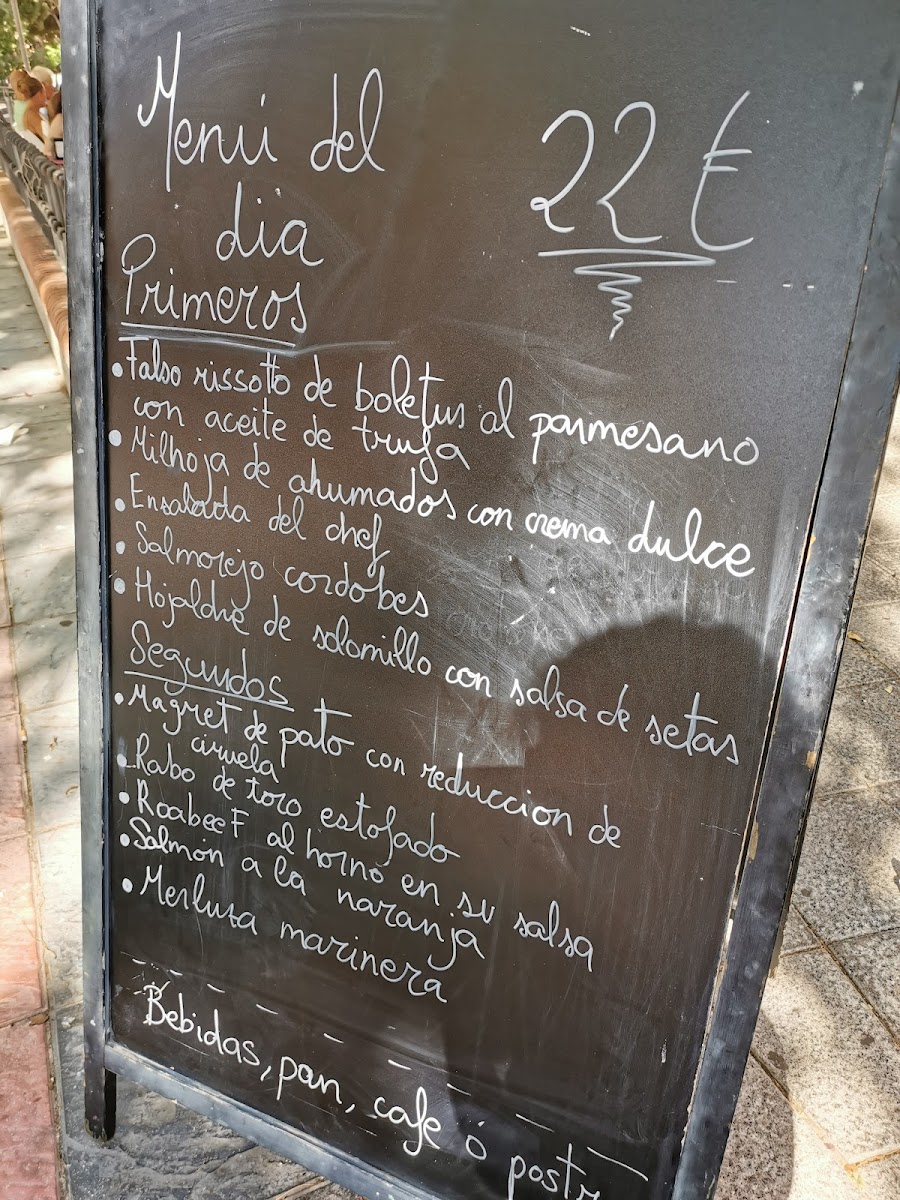 Menú del
dia
22 €
Primeros
• Falso rissotto de boletus al parmesano
con aceite de trufa
• Milhoja de ahumados con crema dulce
• Ensalada del chef
• Salmorejo cordobes
• Hojaldre de solomillo con salsa de setas
Segundos
• Magret de pato con reduccion de
ciruela
• Rabo de toro estofado
• Roabeef al horno en su salsa
• Salmón a la naranja
• Merluza marinera
Bebidas, pan, cafe ó postr